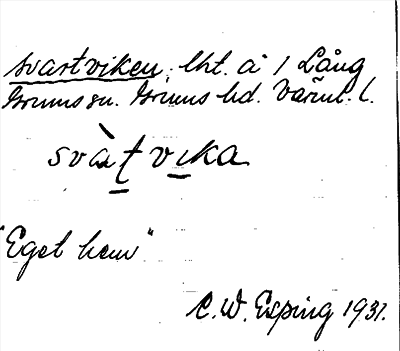 Svartviken, lht. å 1 Lång
Grums sn. Grums hd. Värml. l.
svàt vika
"Eget hem"
C. W. Esping 1931.